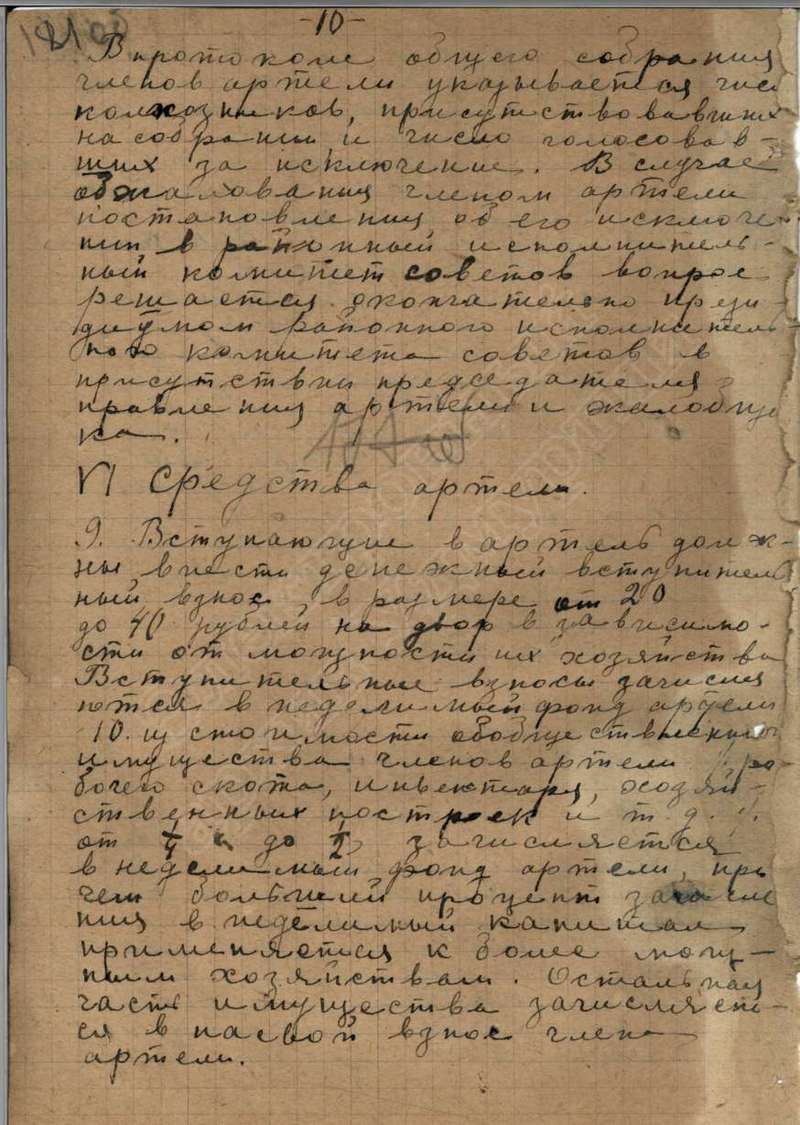 -10-
В протоколе общего собрания
членов артели указывается чис
колхозников, присутствовавших
на собрании, и число голосовав-
ших за исключение. В случае
обжалования членом артели
постановления об его исключе-
нии в районный исполнитель-
ный комитет советов вопрос
решается окончательно прези-
диумом районного исполнитель-
ного комитета советов в
присутствии председателя
правления артели и жалобщи
ка.
VI Средства артели.
9. Вступающие в артель долж-
ны внести денежный вступитель
ный взнос в размере от 20
до 40 рублей на двор в зависимо-
сти от мощности их хозяйства
Вступительные взносы зачисля
ются в неделимый фонд артели
10. из стоимости обобществленного
имущества членов артели ра-
бочего скота, инвентаря, хозяй-
ственных построек и т.д.
от до зачисляется
в неделимый фонд артели, при
чем больший процент зачисле
ния в неделимый капитал
применяется к более мощ-
ным хозяйствам. Остальная
часть имущества зачисляет-
ся в паевой взнос члена
артели.